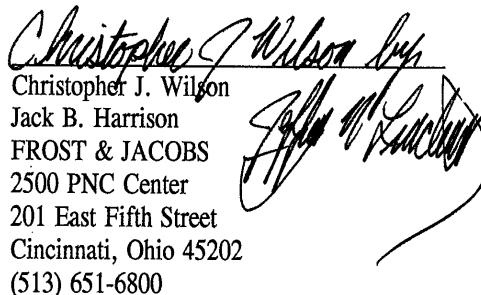 Christopher J Wilson by
Christopher J. Wilson
Jack B. Harrison
FROST & JACOBS
2500 PNC Center
201 East Fifth Street
Cincinnati, Ohio 45202
(513) 651-6800